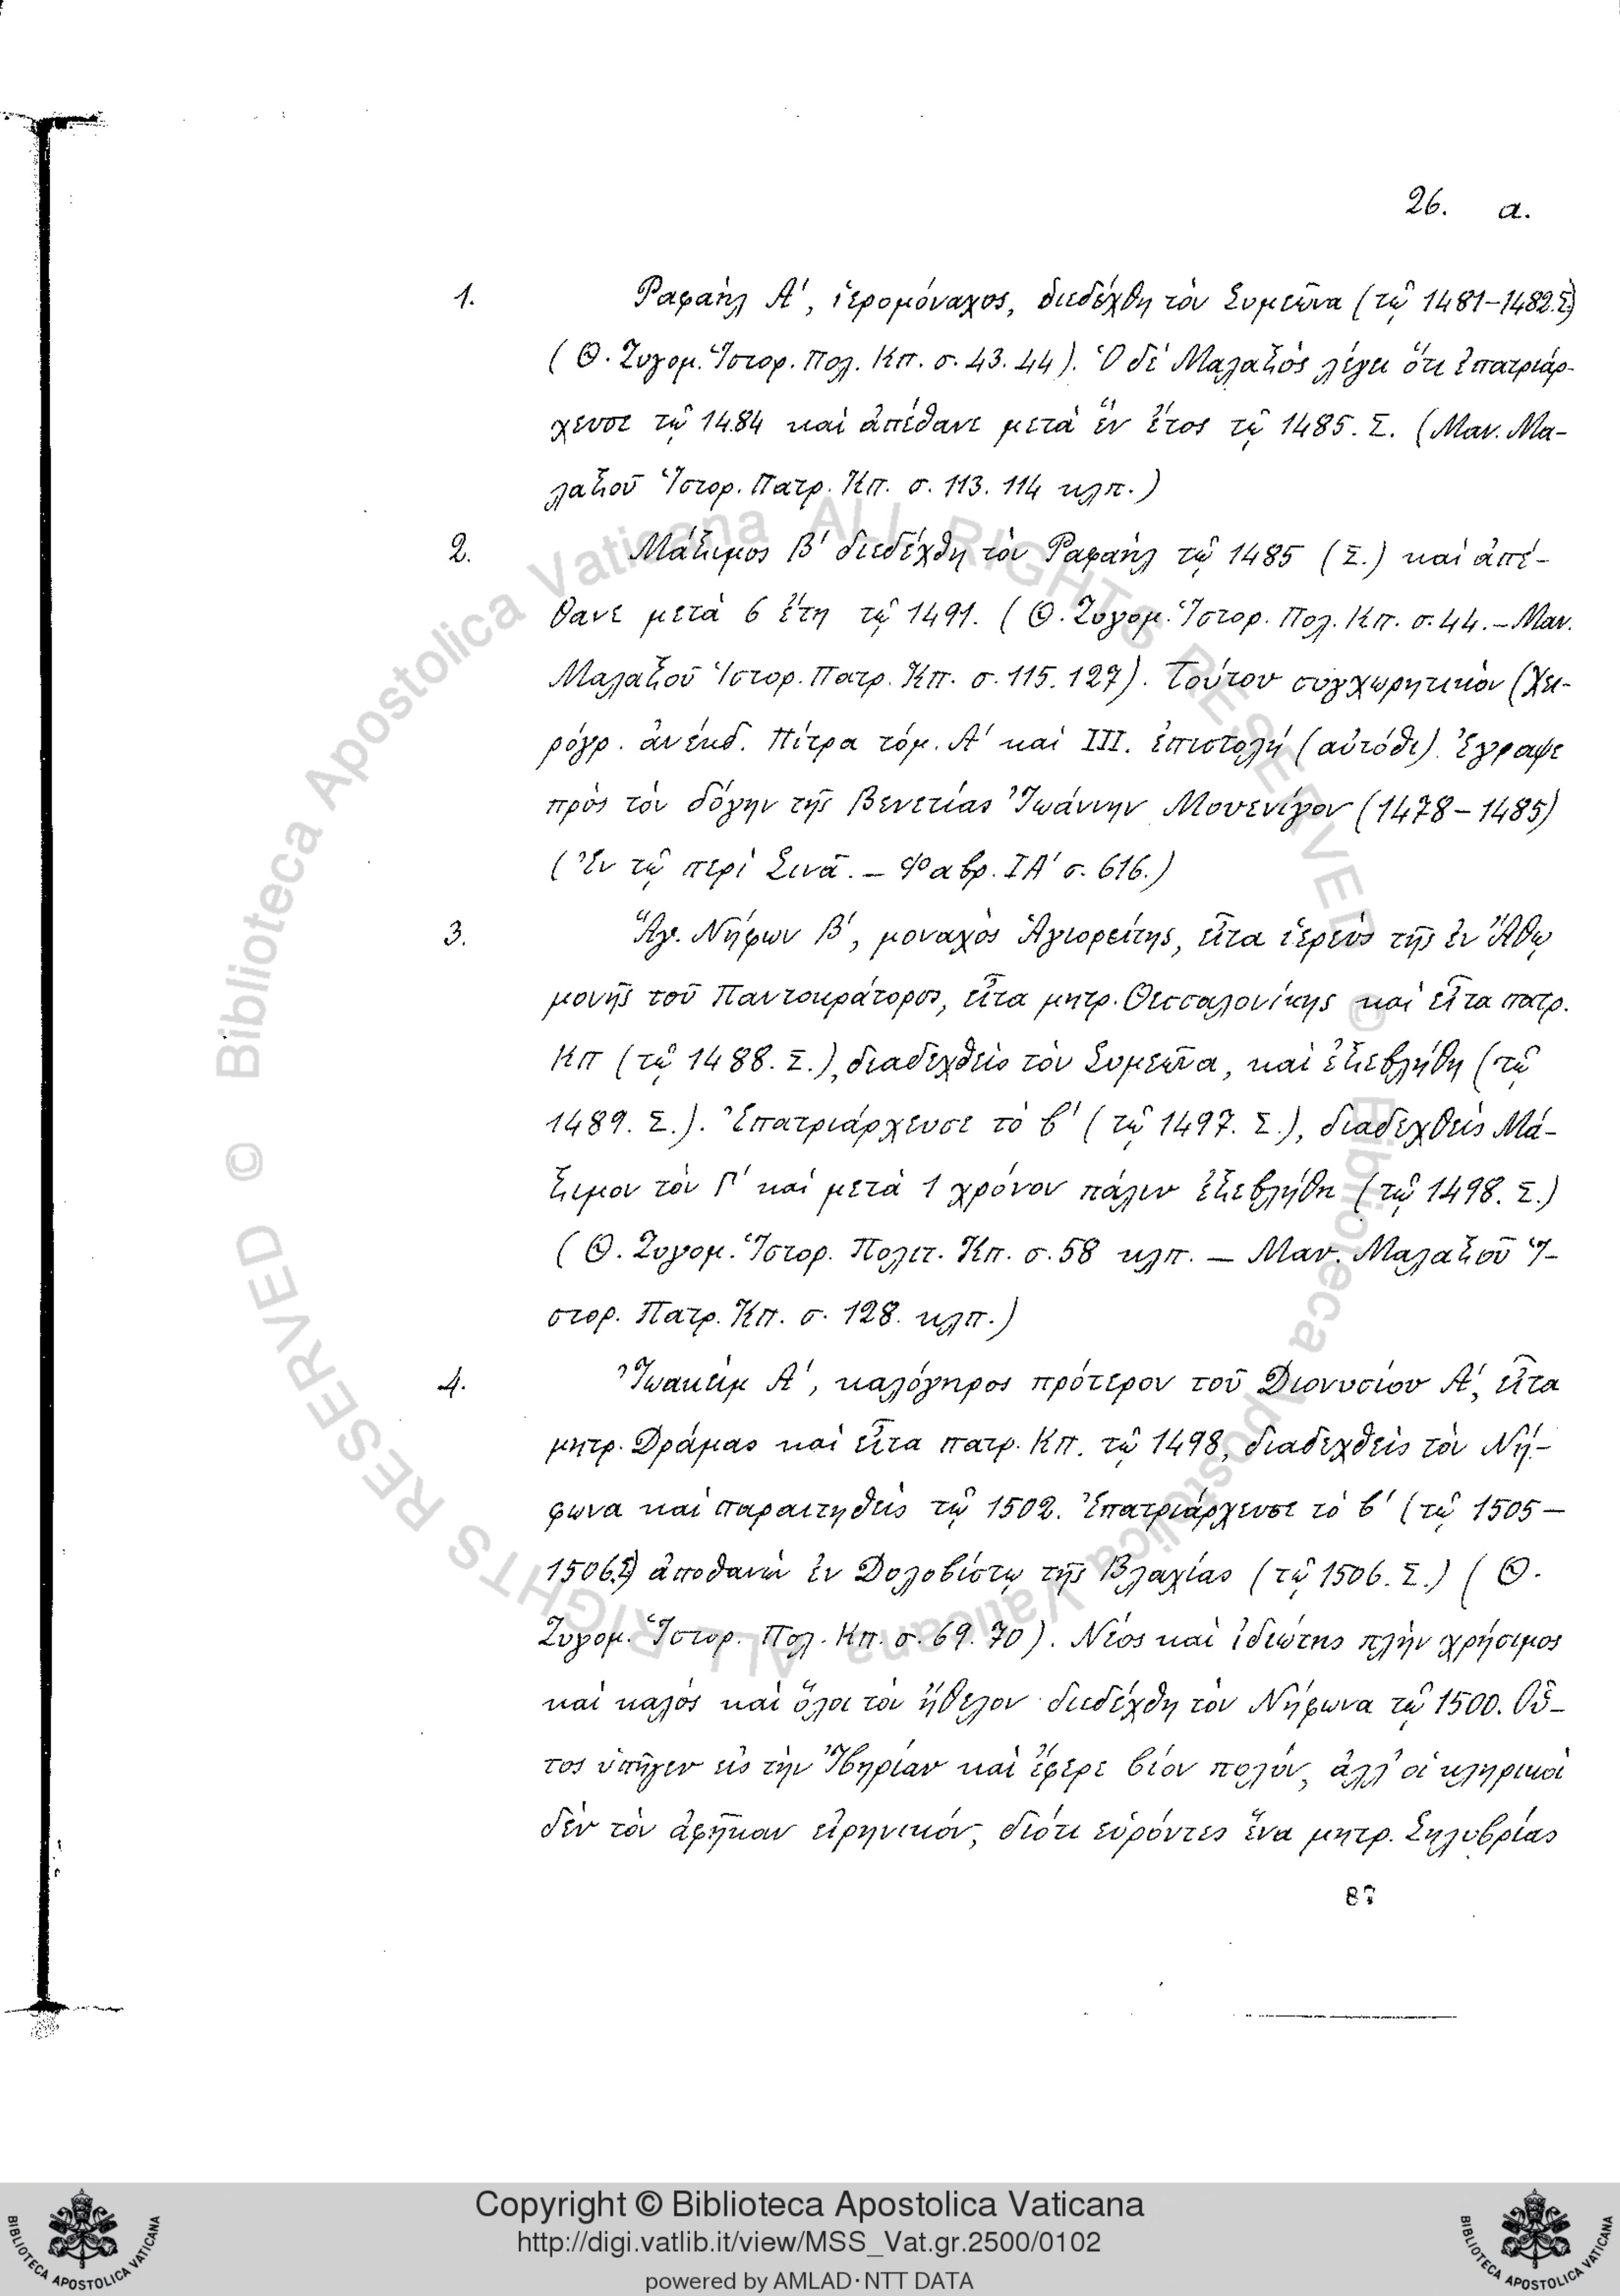 26. a.
1. Ραφαὴλ Α', ἱερομόναχος, διεδέχθη τὸν Συμεῶνα (τῷ 1481–1482.Σ)
(Θ. Ζυγομ. Ἱστορ. Πολ. Κπ. σ. 43. 44). Ὁ δὲ Μαλαξὸς λέγει ὅτι ἐπατριάρ-
χευσε τῷ 1484 καὶ ἀπέθανε μετὰ ἓν ἔτος τῷ 1485. Σ. (Μαν. Μα-
λαξοῦ Ἱστορ. Πατρ. Κπ. σ. 113. 114 κλπ.)
2. Μάξιμος Β' διεδέχθη τὸν Ραφαὴλ τῷ 1485 (Σ.) καὶ ἀπέ-
θανε μετὰ 6 ἔτη τῷ 1491. (Θ. Ζυγομ. Ἱστορ. Πολ. Κπ. σ. 44. – Μαν.
Μαλαξοῦ Ἱστορ. Πατρ. Κπ. σ. 115. 127). Τούτου συγχωρητικὸν (Χει-
ρόγρ. ἀνέκδ. Πίτρα τόμ. Α' καὶ III. ἐπιστολή (αὐτόθι). Ἔγραψε
πρὸς τὸν δόγην τῆς Βενετίας Ἰωάννην Μουενίγον (1478–1485)
(Ἐν τῷ περὶ Σινᾶ. – Φαβρ. ΙΑ' σ. 616.)
3. Ἅγ. Νήφων Β', μοναχὸς Ἁγιορείτης, εἶτα ἱερεὺς τῆς ἐν Ἄθῳ
μονῆς τοῦ Παντοκράτορος, εἶτα μητρ. Θεσσαλονίκης καὶ εἶτα πατρ.
Κπ (τῷ 1488. Σ.), διαδεχθεὶς τὸν Συμεῶνα, καὶ ἐξεβλήθη (τῷ
1489. Σ.). Ἐπατριάρχευσε τὸ β' (τῷ 1497. Σ.), διαδεχθεὶς Μά-
ξιμον τὸν Γ' καὶ μετὰ 1 χρόνον πάλιν ἐξεβλήθη (τῷ 1498. Σ.)
(Θ. Ζυγομ. Ἱστορ. Πολιτ. Κπ. σ. 58 κλπ. – Μαν. Μαλαξοῦ Ἱ-
στορ. Πατρ. Κπ. σ. 128. κλπ.)
4. Ἰωακεὶμ Α', καλόγηρος πρότερον τοῦ Διονυσίου Α', εἶτα
μητρ. Δράμας καὶ εἶτα πατρ. Κπ. τῷ 1498, διαδεχθεὶς τὸν Νή-
φωνα καὶ παραιτηθεὶς τῷ 1502. Ἐπατριάρχευσε τὸ β' (τῷ 1505–
1506.Σ) ἀποθανὼν ἐν Δολοβίστῳ τῆς Βλαχίας (τῷ 1506. Σ.) (Θ.
Ζυγομ. Ἱστορ. Πολ. Κπ. σ. 69. 70). Νέος καὶ ἰδιώτης πλὴν χρήσιμος
καὶ καλὸς καὶ ὅλοι τὸν ἤθελον διεδέχθη τὸν Νήφωνα τῷ 1500. Οὗ-
τος ὑπῆγεν εἰς τὴν Ἰβηρίαν καὶ ἔφερε βίον πολύν, ἀλλ' οἱ κληρικοὶ
δὲν τὸν ἀφῆκαν εἰρηνικόν, διότι εὑρόντες ἕνα μητρ. Σηλυβρίας
87
© Biblioteca Apostolica Vaticana ALL RIGHTS RESERVED
© Biblioteca Apostolica Vaticana ALL RIGHTS RESERVED
Copyright © Biblioteca Apostolica Vaticana
http://digi.vatlib.it/view/MSS_Vat.gr.2500/0102
powered by AMLAD·NTT DATA
BIBLIOTECA APOSTOLICA VATICANA
BIBLIOTECA APOSTOLICA VATICANA